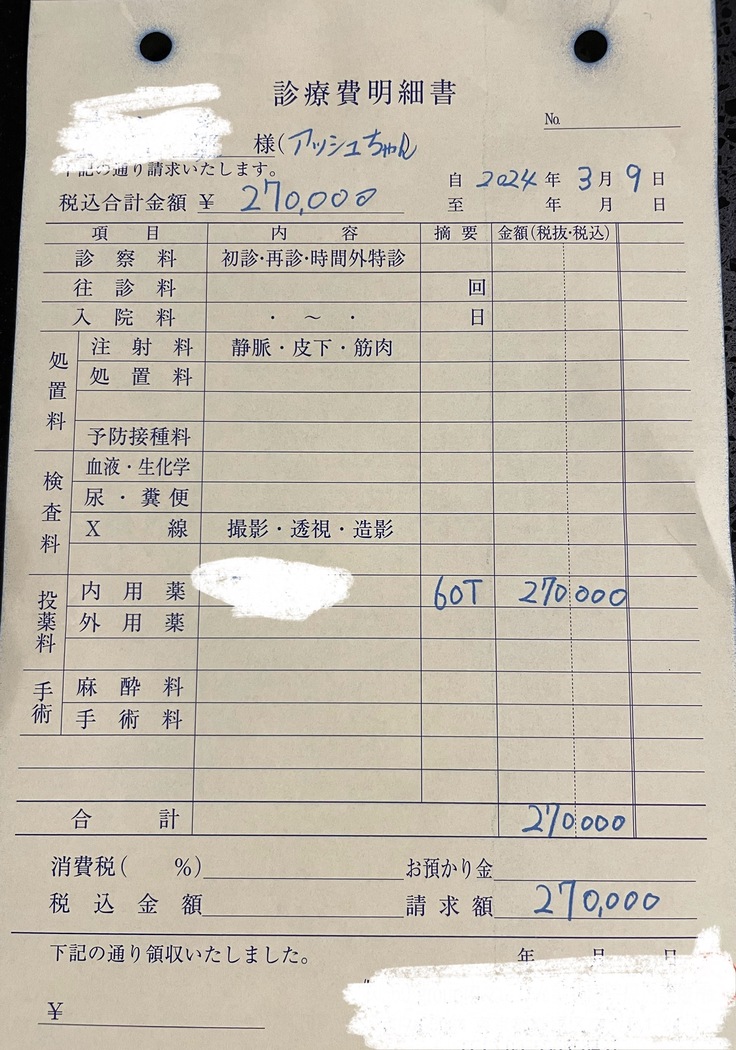 診療費明細書
No.
様(アッシュちゃん
下記の通り請求いたします。
自 2024年 3月 9日
税込合計金額 ¥ 270,000
至 年 月 日
項目 内容 摘要 金額(税抜・税込)
診察料 初診・再診・時間外特診
往診料 回
入院料 ・ ～ ・ 日
処置料
注射料 静脈・皮下・筋肉
処置料
予防接種料
検査料
血液・生化学
尿・糞便
X線 撮影・透視・造影
投薬料
内用薬 60T 270,000
外用薬
手術
麻酔料
手術料
合計 270,000
消費税( %) お預かり金
税込金額 請求額 270,000
下記の通り領収いたしました。 年 月 日
¥